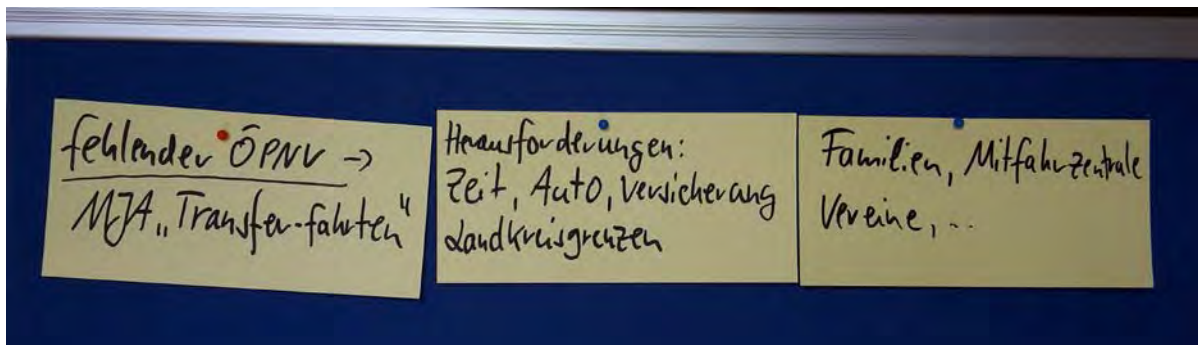 fehlender ÖPNV →
MJA „Transfer-fahrten“
Herausforderungen:
Zeit, Auto, Versicherung
Landkreisgrenzen
Familien, Mitfahrzentrale
Vereine, ...